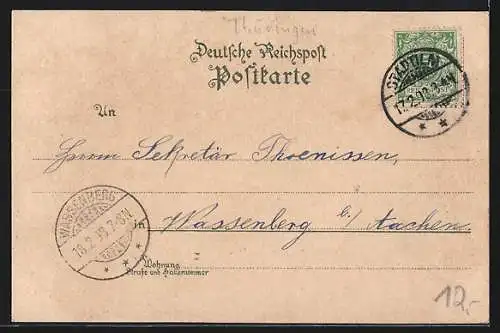 Thüringen
Deutsche Reichspost
Postkarte
STADTILM
17.2.98
An
Herrn Sekretär Thoenissen,
WASSENBERG
18.2.98.7-8N
in
Wassenberg b/ Aachen.
Wohnung
Straße und Hausnummer
12,-